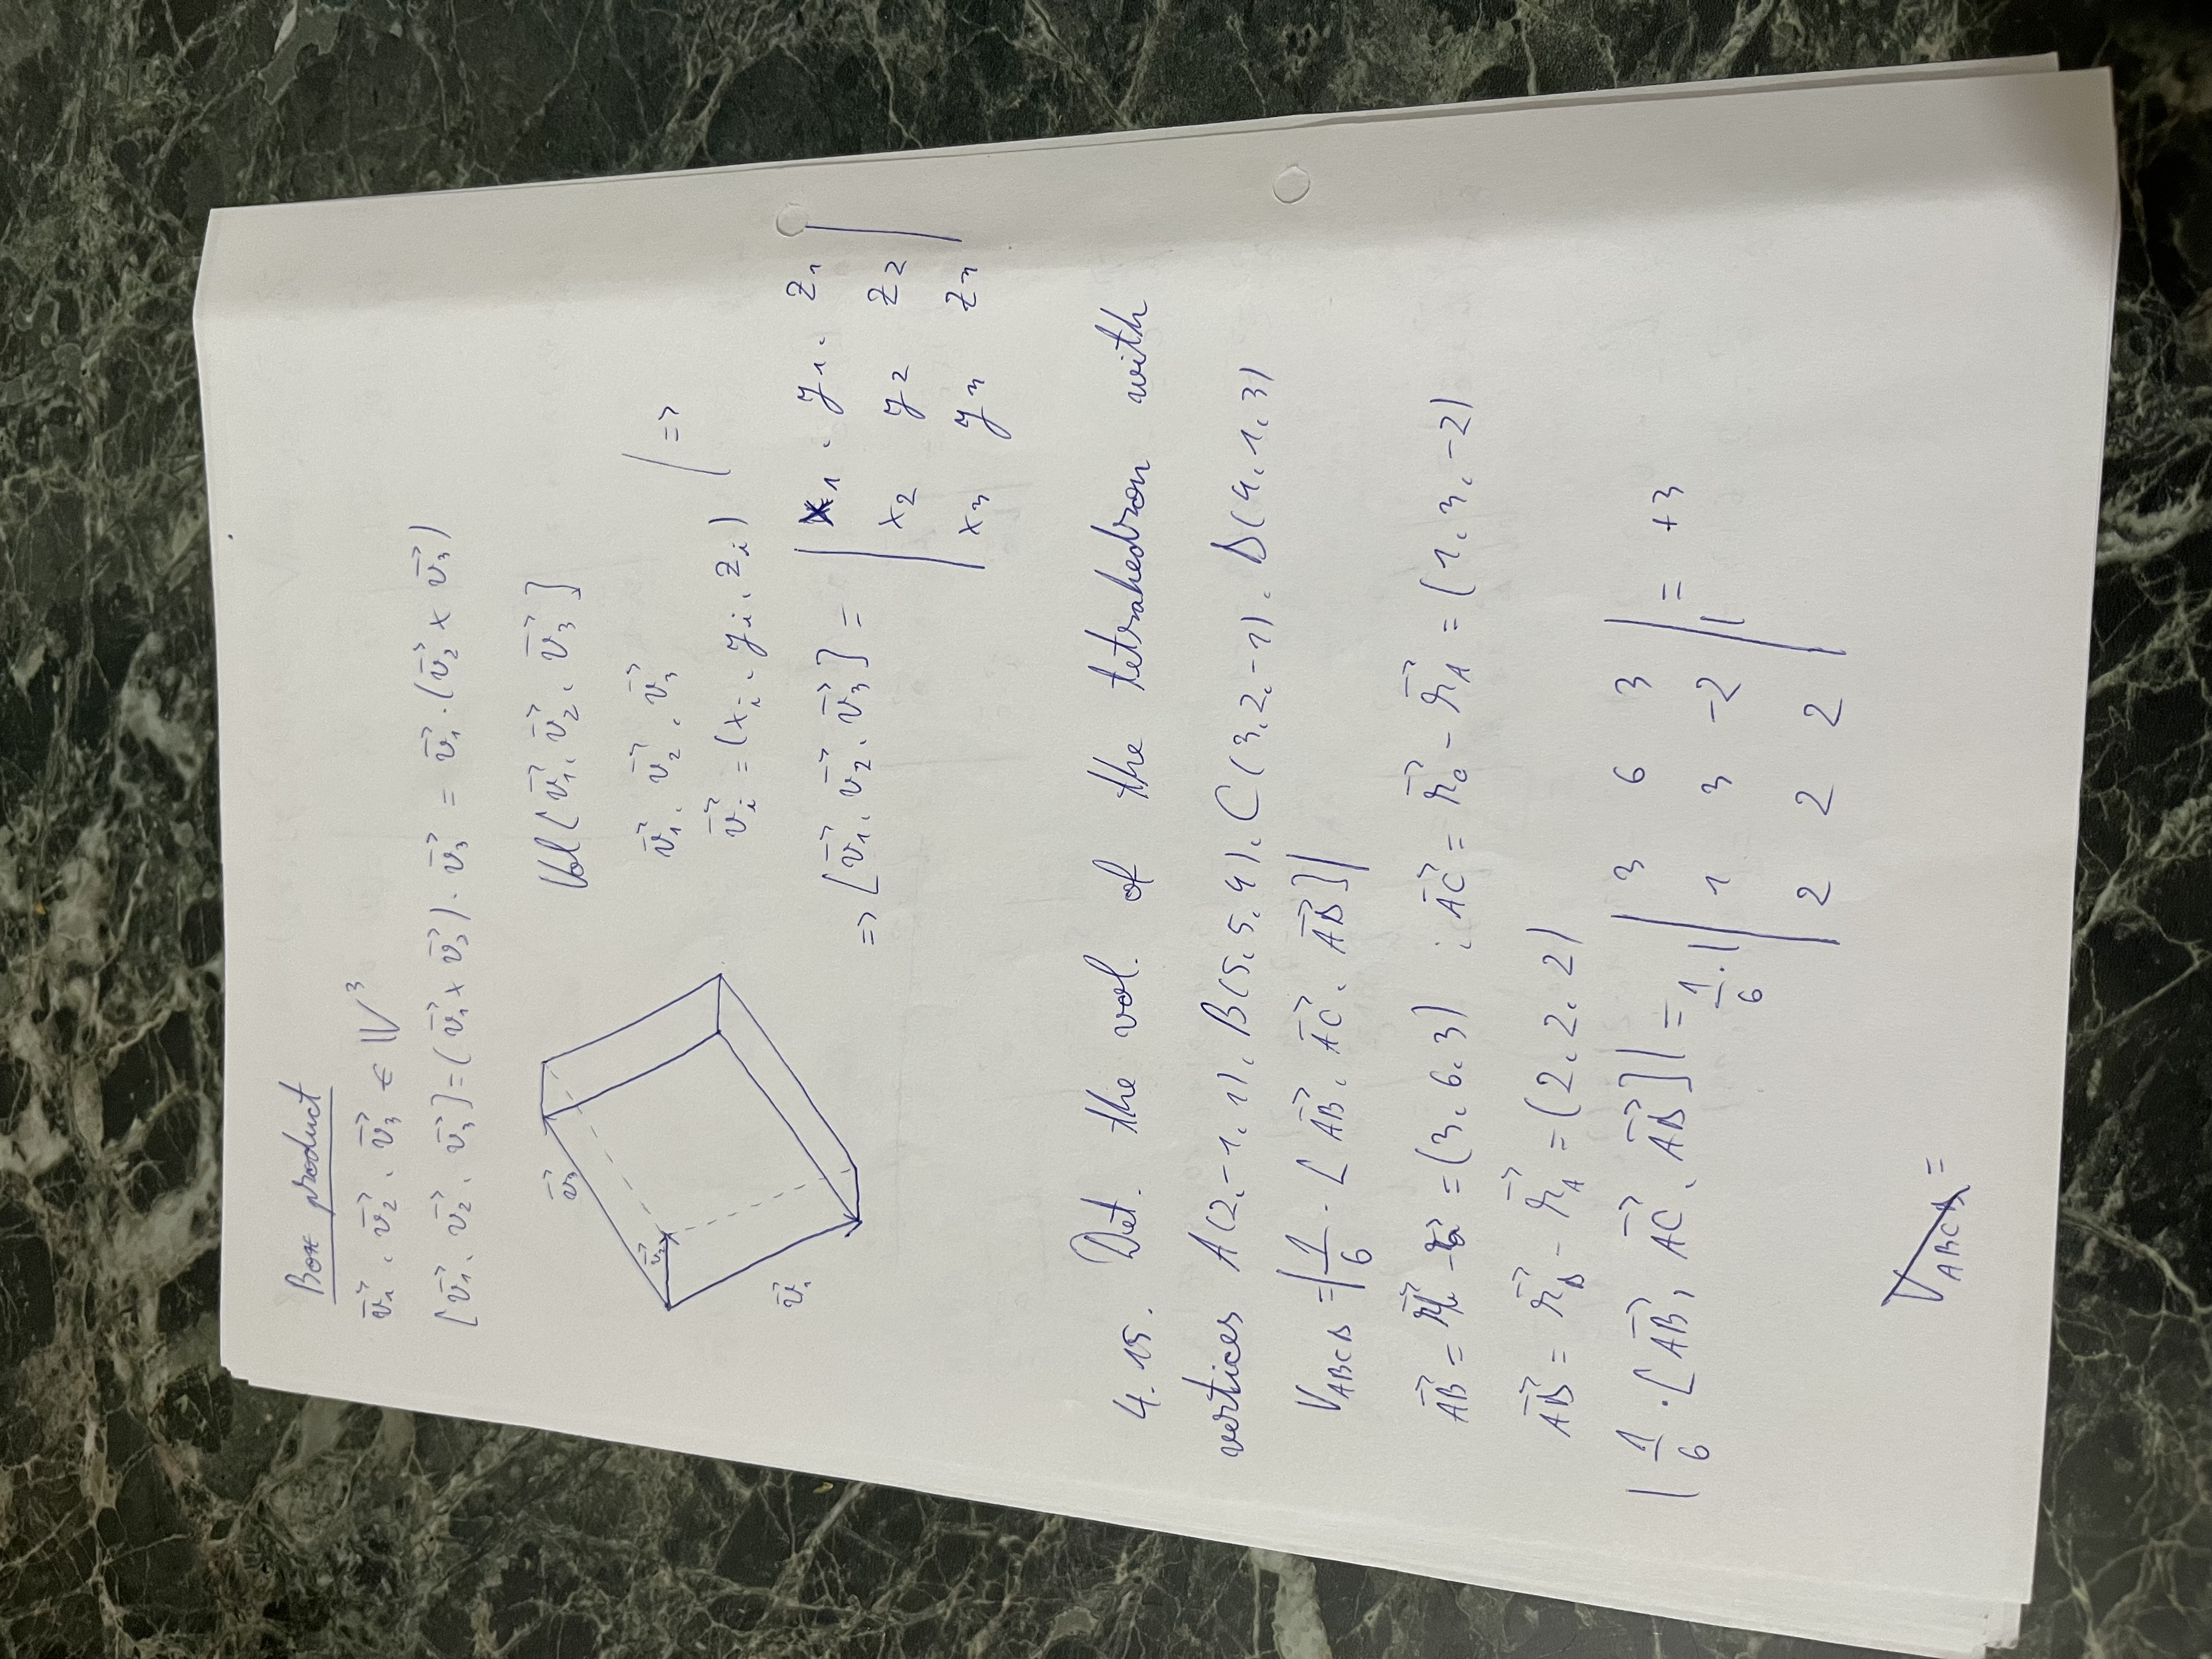 Box product
v⃗₁, v⃗₂, v⃗₃ ∈ V³
[v⃗₁, v⃗₂, v⃗₃] = (v⃗₁ × v⃗₂) · v⃗₃ = v⃗₁ · (v⃗₂ × v⃗₃)
v⃗₃
v⃗₂
v⃗₁
Vol [v⃗₁, v⃗₂, v⃗₃]
v⃗₁, v⃗₂, v⃗₃ | =>
v⃗ᵢ = (xᵢ, yᵢ, zᵢ)
=> [v⃗₁, v⃗₂, v⃗₃] = | x₁, y₁, z₁ |
x₂ y₂ z₂
x₃ y₃ z₃
4.15. Det. the vol. of the tetrahedron with
vertices A(2,-1,1), B(5,5,4), C(3,2,-1), D(4,1,3)
V_ABCD = |1/6 · [AB⃗, AC⃗, AD⃗]|
AB⃗ = = (3,6,3) ; AC⃗ = r⃗_C - r⃗_A = (1,3,-2)
AD⃗ = r⃗_D - r⃗_A = (2,2,2)
|1/6 · [AB⃗, AC⃗, AD⃗]| = 1/6 · | | 3 6 3 | | = +3
1 3 -2
2 2 2
V_ABCD =